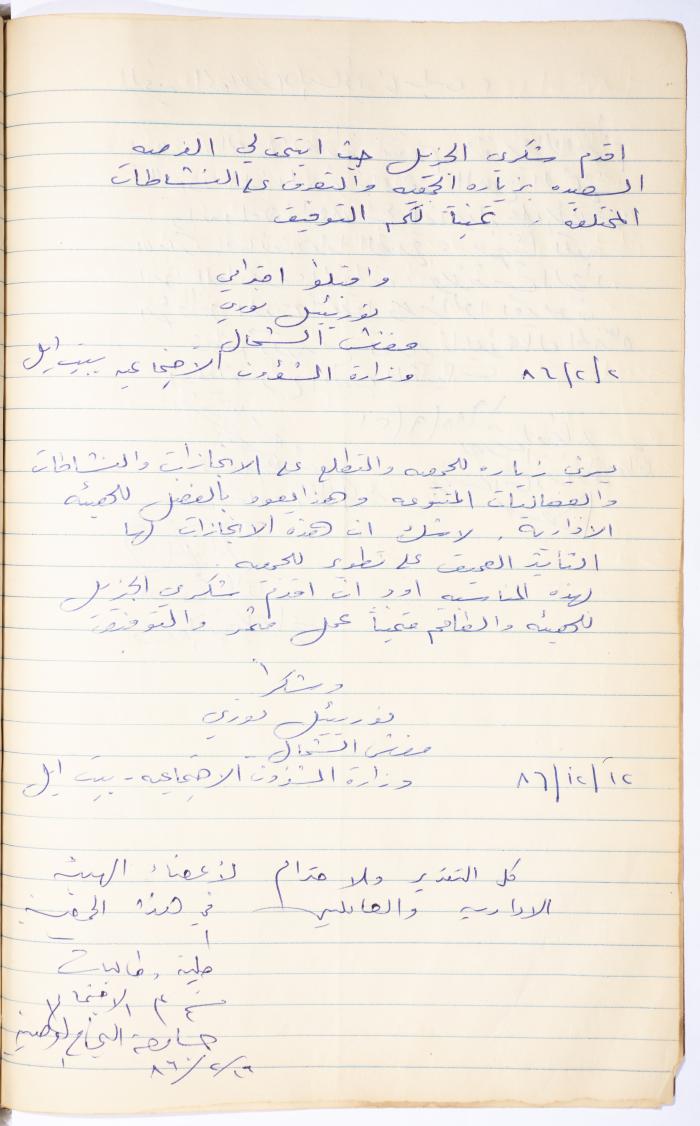 اقدم شكري الجزيل حيث اتيحت لي الفرصه
السعيده بزيارة الجمعيه والتعرف على النشاطات
المختلفه متمنياً لكم التوفيق
واقبلوا احترامي
نوري
مفتش الشمال
وزارة الشؤون الاجتماعيه بيت ايل
٨٦/٢/٢
يسرني زيارة الجمعيه والتطلع على الانجازات والنشاطات
والفعاليات المتنوعه وهذا يعود بالفضل للهيئه
الادارية. لا شك ان هذه الانجازات لها
التأثير العميق على تطوير الجمعيه.
بهذه المناسبه اود ان اقدم شكري الجزيل
للهيئه والطاقم متمنياً عمل مثمر والتوفيق
وشكراً
نوري
مفتش الشمال
وزارة الشؤون الاجتماعيه - بيت ايل
٨٦/١٢/١٢
كل التقدير والاحترام لأعضاء الهيئه
الاداريه والعاملين في هذه الجمعية
طلبة وطالبات
علم الاجتماع
جامعة النجاح الوطنية